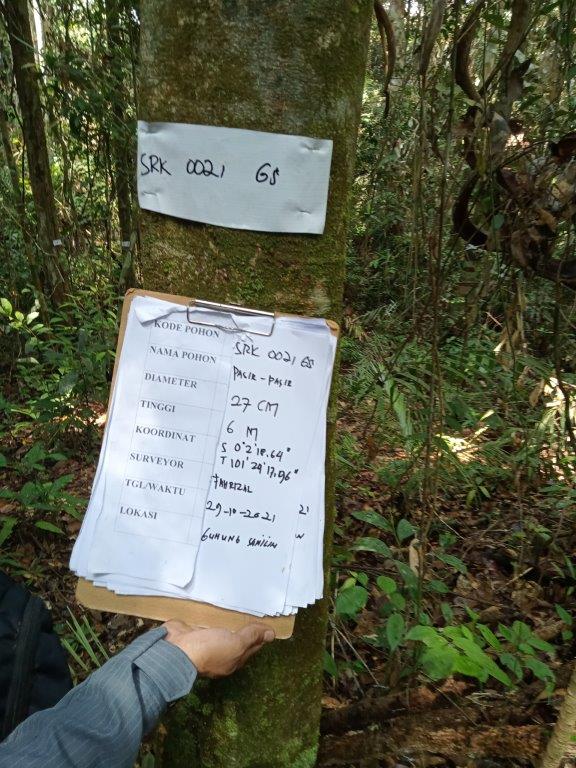 SRK 0021 GS
KODE POHON SRK 0021 GS
NAMA POHON PASIR-PASIR
DIAMETER 27 CM
TINGGI 6 M
KOORDINAT S 0°2'18.64"
T 101°24'17.96"
SURVEYOR FAHRIZAL
TGL/WAKTU 29-10-2021
LOKASI GUNUNG SAHILAN
21